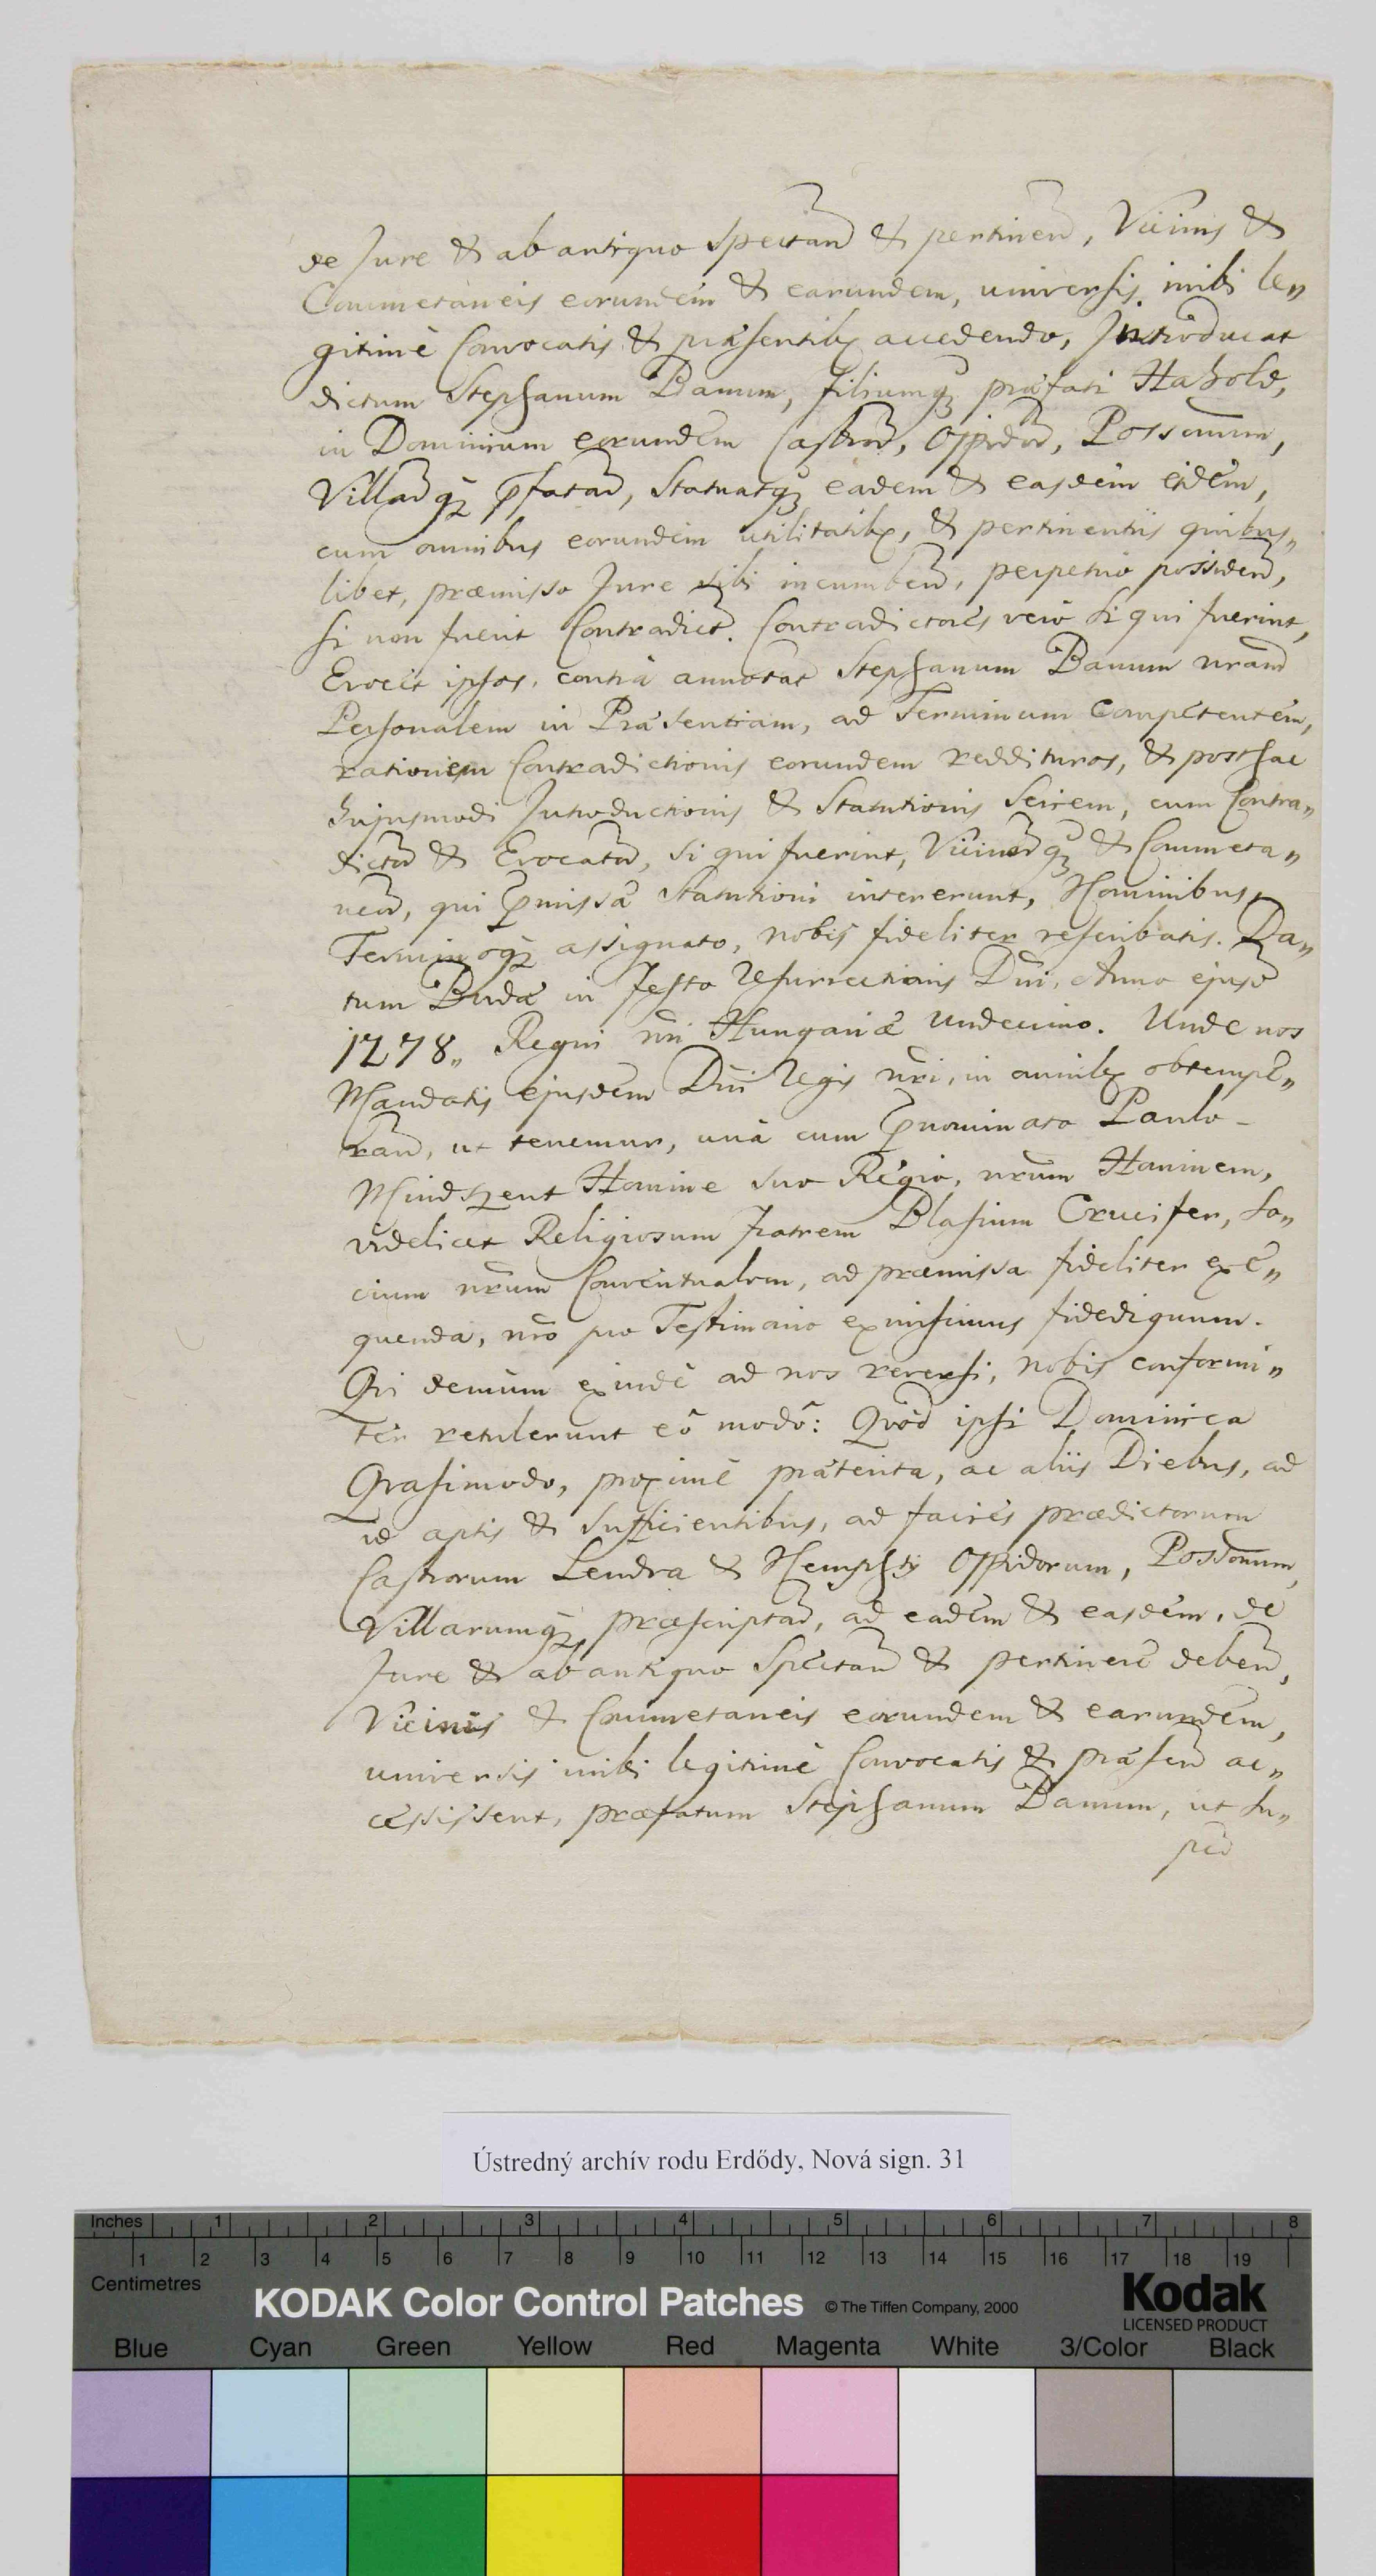 de Jure & ab antiquo Spectañ & pertineñ, Vicinis &
Commetaneis eorundem & earundem, universis inibi le„
gitimè Convocatis & præsentibȝ accedendo, Introducat
dictum Stephanum Banum, filiumqȝ præfati Hahold,
in Dominium eorundem Castroȓ, Oppidoȓ, Possonum,
Villaȓqȝ p̄fataȓ, Statuatqȝ eadem & easdem eidem,
cum omnibus eorundem utilitatibȝ, & pertinentiis quibus„
libet, præmisso Jure sibi incumbeñ, perpetuo possideñ,
si non fuerit Contradict̃. Contradictores verò si qui fuerint,
Evocet ipsos, contrà annotat̃ Stephanum Banum nr̃am
Personalem in Præsentiam, ad Terminum Competentem,
rationem Contradictionis eorundem reddituros, & posthac
hujusmodi Introductionis & Statutionis Seriem, cum Contra„
dictoȓ & Evocatoȓ, si qui fuerint, Vicinoȓqȝ & Commeta„
neoȓ, qui p̄missæ Statutioni intererunt, Nominibus,
Terminoqȝ assignato, nobis fideliter rescribatis. Da„
tum Budæ in festo Resurrectionis Dñi, Anno ejusd̃
1278„ Regni nr̃i Hungariæ Undecimo. Unde nos
Mandatis ejusdem Dñi Regis nr̃i, in omnibȝ obtempe„
rañ, ut tenemur, unà cum p̄nominato Paulo
Mindszent Homine suo Regio, nr̃um Hominem,
videlicet Religiosum fratrem Blasium Crucifer, So„
cium nr̃um Conventualem, ad præmissa fideliter exe„
quenda, nr̃o pro Testimonio exmisimus fidedignum.
Qvi demùm exindè ad nos reversi, nobis conformi„
ter retulerunt eô modô: Qvòd ipsi Dominica
Qvasimodo, proximè præterita, ac aliis Diebus, ad
id aptis & sufficientibus, ad facies prædictorum
Castrorum Lendva & Nemphty Oppidorum, Possonum,
Villarumqȝ præscriptaȓ, ad eadem & easdem, de
Jure & ab antiquo Spectañ & pertinere debeñ,
Vicinis & Commetaneis eorundem & earundem,
universis inibi legitimè Convocatis & præseñ ac„
cessissent, præfatum Stephanum Banum, ut su„
pȓa
Ústredný archív rodu Erdődy, Nová sign. 31
Inches 1 2 3 4 5 6 7 8
1 2 3 4 5 6 7 8 9 10 11 12 13 14 15 16 17 18 19
Centimetres
KODAK Color Control Patches © The Tiffen Company, 2000
Kodak
LICENSED PRODUCT
Blue Cyan Green Yellow Red Magenta White 3/Color Black